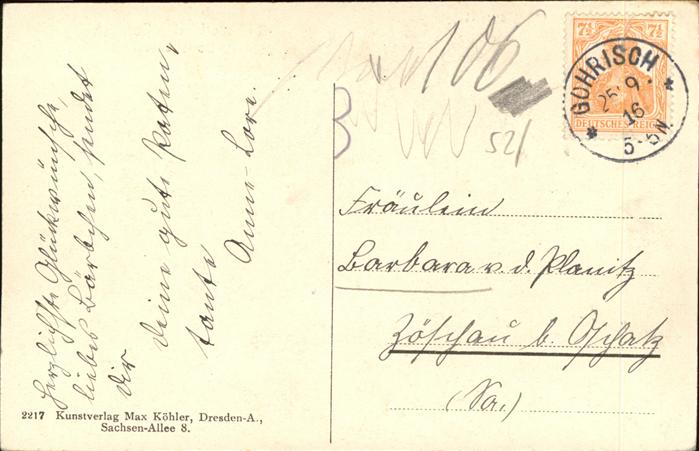 Herzlichste Glückwünsche,
liebes Bärbchen, sendet
dir Deine gute Paten,
tante
Anne-Lore.
106
52/
7½ 7½
DEUTSCHES REICH
GOHRISCH
25. 9.
16
5-6N
Fräulein
Barbara v. d. Planitz
Zöschau b. Oschatz
(Sa.)
2217 Kunstverlag Max Köhler, Dresden-A.,
Sachsen-Allee 8.